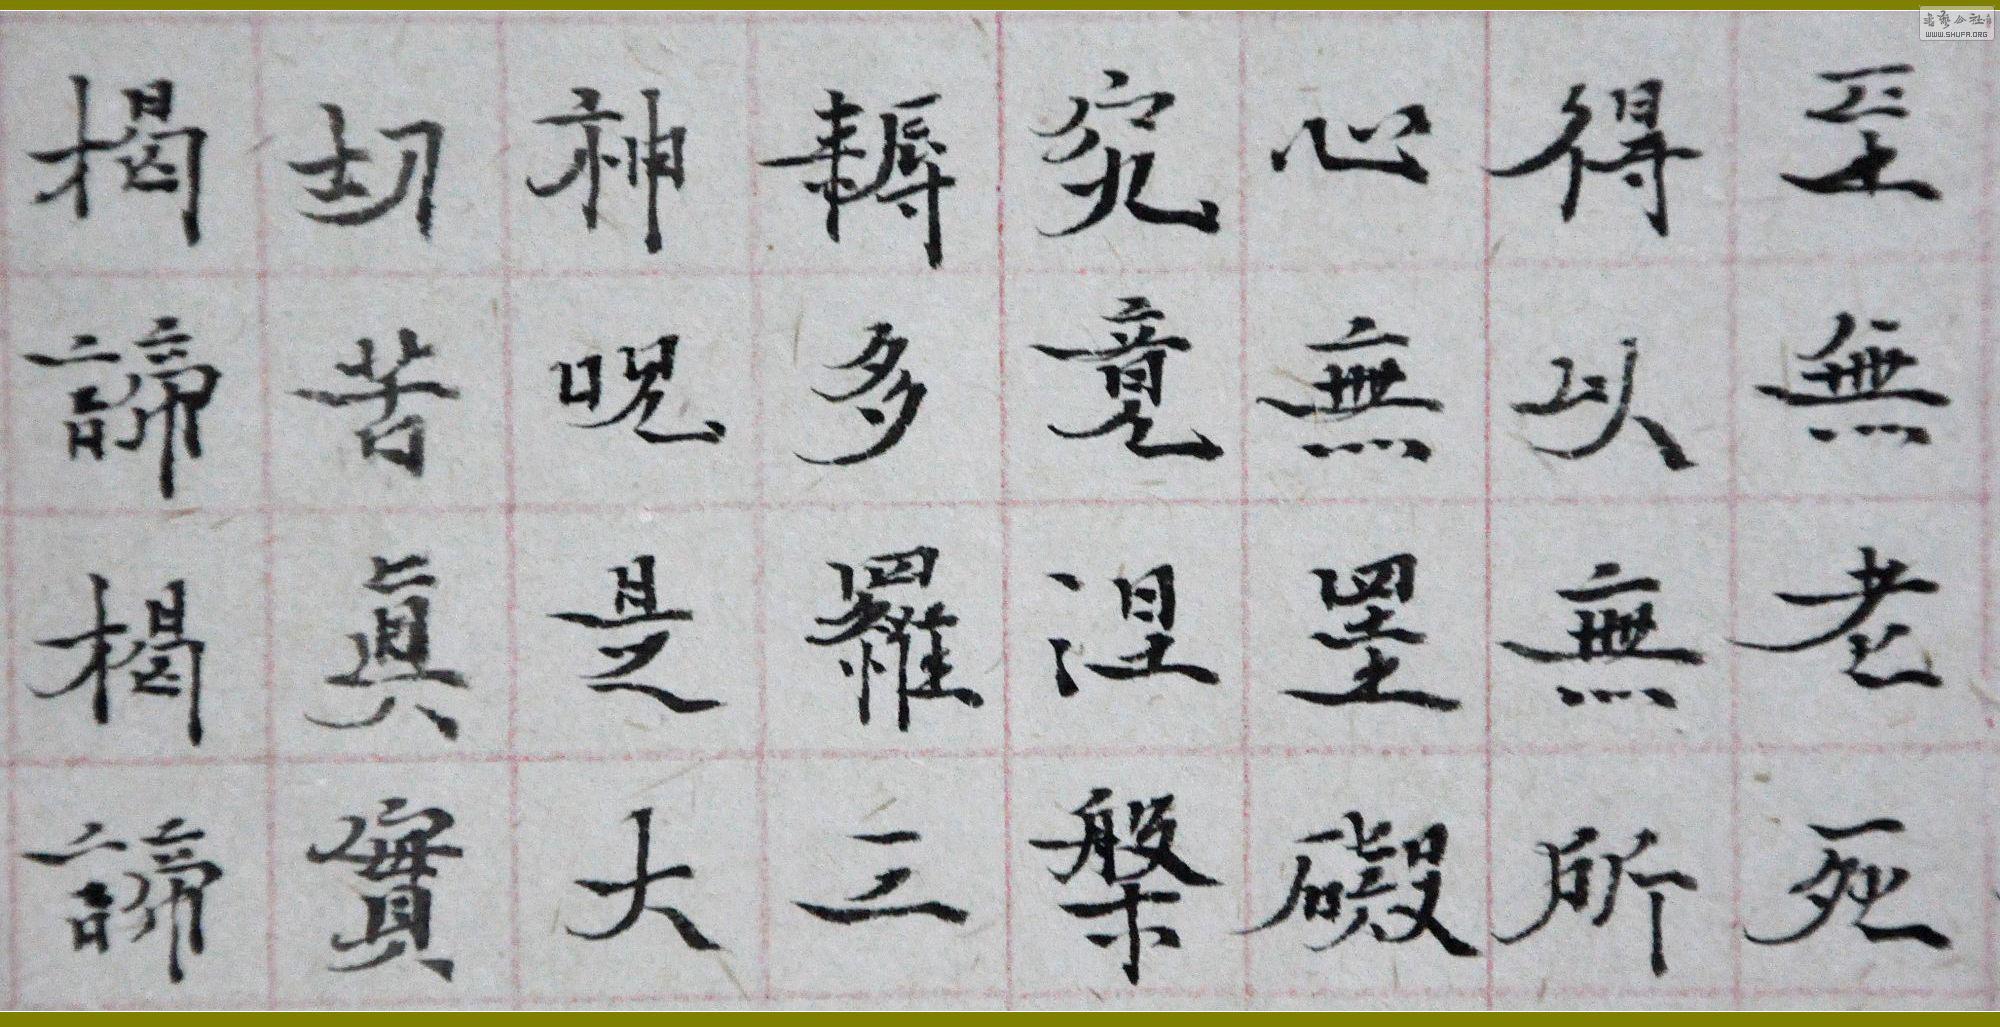 至無老死
得以無所
心無罣礙
究竟涅槃
耨多羅三
神呪是大
切苦真實
揭諦揭諦
WWW.SHUFA.ORG